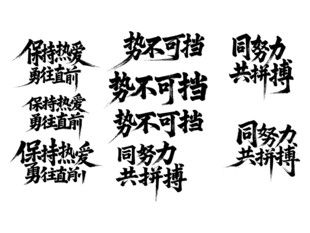 保持热爱
勇往直前
保持热爱
勇往直前
保持热爱
勇往直前
势不可挡
势不可挡
势不可挡
同努力
共拼搏
同努力
共拼搏
同努力
共拼搏